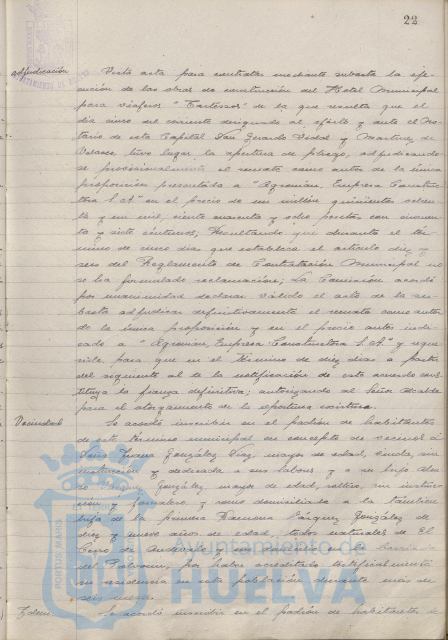 22
adjudicación
Vista acta para contratar mediante subasta la eje-
cución de las obras de construcción del Hotel Municipal
para viajeros "Tartessos" de la que resulta que el
día cinco del corriente designado al efecto y ante el No-
tario de esta Capital Don Gerardo Vidal y Martínez de
Velasco tuvo lugar la apertura de pliego, adjudicando
se provisionalmente el remate como autor de la única
proposición presentada a "Agromán, Empresa Construc-
tora S.A" en el precio de un millón quinientas
y un mil, ciento cuarenta y ocho pesetas con cincuen-
ta y siete céntimos; Resultando que durante el tér-
mino de cinco días que establece el artículo diez y
seis del Reglamento de Contratación Municipal no
se ha formulado reclamación; La Comisión acordó
por unanimidad declarar válido el acto de la su-
basta adjudicar definitivamente el remate como autor
de la única proposición y en el precio antes indi-
cado a "Agromán, Empresa Constructora S.A." y reque-
rirle para que en el término de diez días a partir
del siguiente al de la notificación de este acuerdo cons-
tituya la fianza definitiva; autorizando al Señor Alcalde
para el otorgamiento de la escritura
Vecindad
Se acordó inscribir en el padrón de habitantes
de este término municipal en concepto de vecinos a
Juana González mayor de edad, viuda, sin
instrucción y dedicada a sus labores y a su hijo
González, mayor de edad, soltero, sin instruc-
ción y jornalero, y como domiciliada a la también
hija de la primera Ramona Vázquez González de
diez y nueve años de edad, todos naturales de El
Cerro de Andévalo y con domicilio en la barriada
del por haber acreditado testificalmente
su residencia en esta población durante más de
seis meses.
Idem.
Se acordó inscribir en el padrón de habitantes de
PORTUS MARIS
Ayuntamiento de
HUELVA